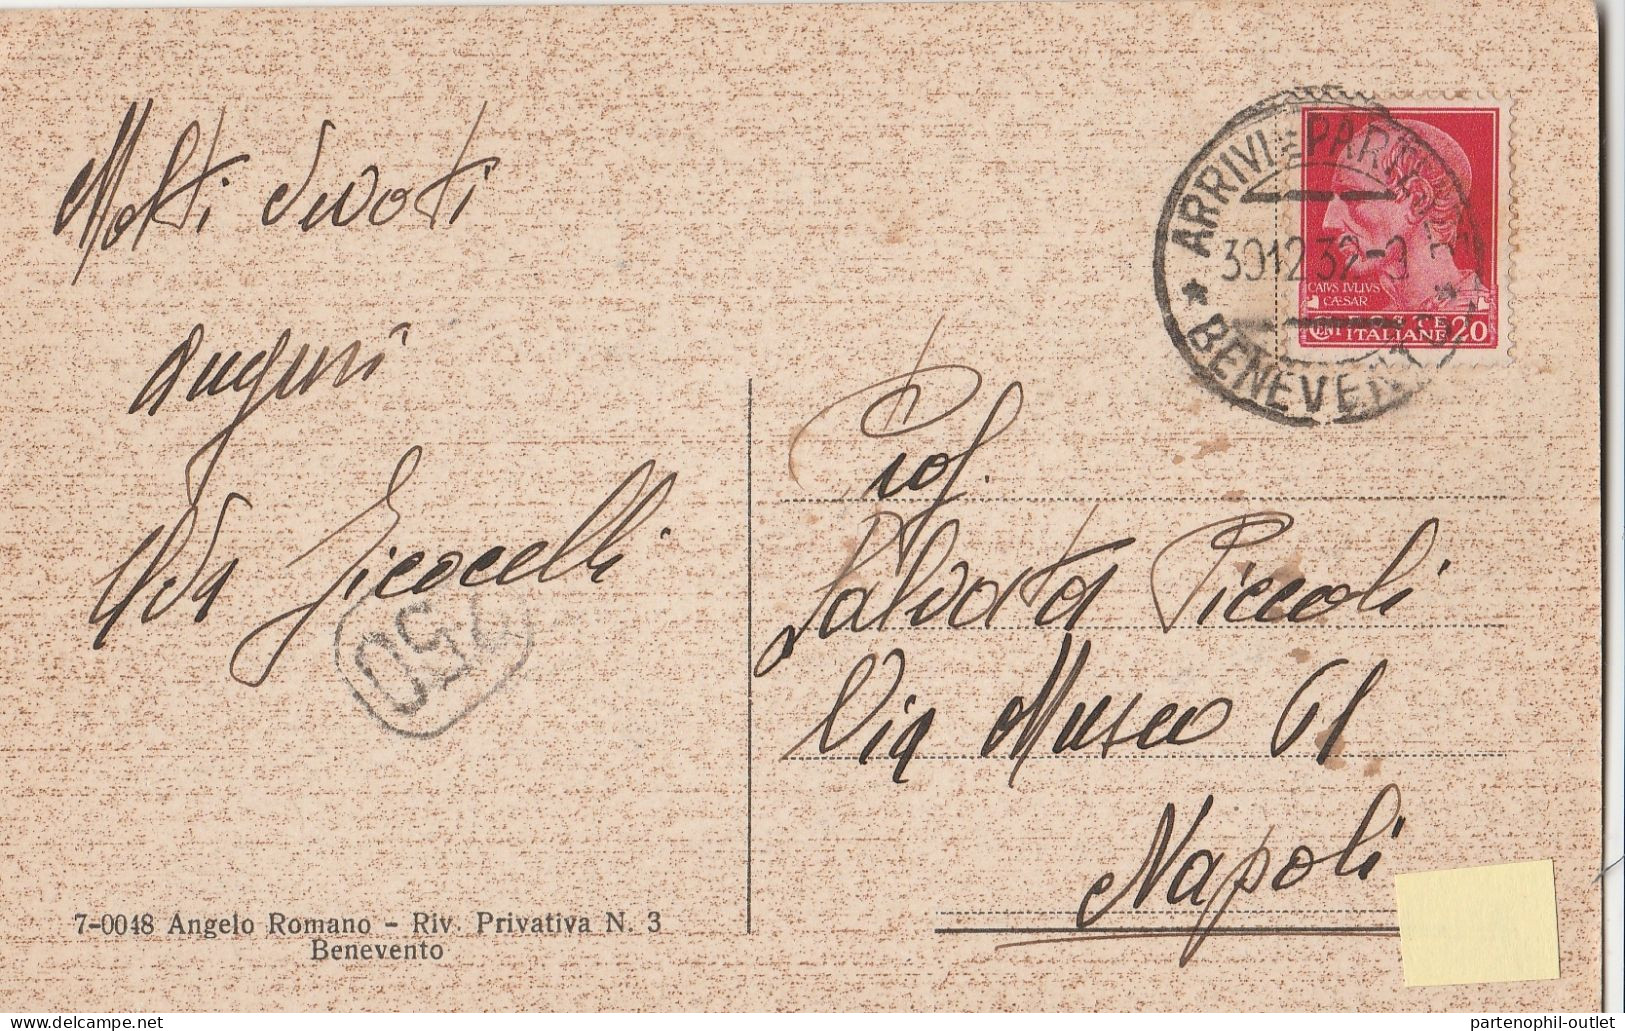 Molti Devoti
Auguri
Ida
250
7-0048 Angelo Romano - Riv. Privativa N. 3
Benevento
ARRIVI = PARTENZE
30 12 32 - 9
* BENEVENTO *
CAIVS IVLIVS
CÆSAR
POSTE
CENT ITALIANE 20
Prof.
Salvatore Piccoli
Via Museo 61
Napoli
delcampe.net
partenophil-outlet